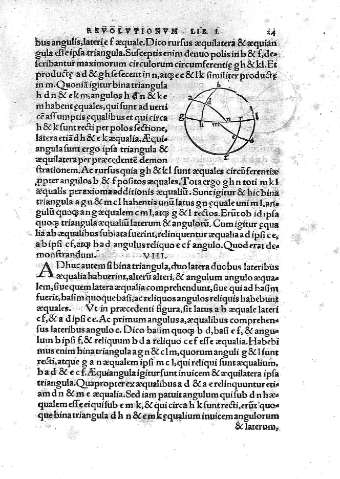 REVOLVTIONVM LIB. I. 24
bus angulis, lateri e f æquale. Dico rursus æquilatera & æquian
gula esse ipsa triangula. Susceptis enim denuo polis in b & f, de-
scribantur maximorum circulorum circumferentię g h & k l. Et
productę a d & g h se secent in n, atq; e c & l k similiter productę
in m. Quoniā igitur bina triangula
h d n & e k m, angulos h d n & k e
m habent equales, qui sunt ad uerti
cē assumptis equalibus et qui circa
h & k sunt recti per polos sectione,
latera etiā d h & e k æqualia. Æqui-
angula sunt ergo ipsa triangula &
æquilatera per præcedentē demon
strationem. Ac rursus quia g h & k l sunt æquales circūferētiæ
ꝓpter angulos b & f positos æquales. Tota ergo g h n toti m k l
æqualis per axioma additionis æqualiū: Sunt igitur & hic bina
triangula a g n & m c l habentia unū latus g n equale uni m l, an-
gulū quoq; a n g æqualem c m l, atq; g & l rectos. Erūt ob id ipsa
quoq; triangula æqualiū laterum & angulorū. Cum igitur equa
lia ab æqualibus sublata fuerint, relinquentur æqualia a d ipsi c e,
a b ipsi c f, atq; b a d angulus reliquo e c f angulo. Quod erat de-
monstrandum. VIII.
ADhuc autem si bina triangula, duo latera duobus lateribus
æqualia habuerint, alterū alteri, & angulum angulo æqua-
lem, siue quem latera æqualia comprehendunt, siue qui ad basim
fuerit, basim quoq; basi, ac reliquos angulos reliquis habebunt
æquales. Vt in præcedenti figura, sit latus a b æquale lateri
c f, & a d ipsi c e. Ac primum angulus a, æqualibus comprehen-
sus lateribus angulo c. Dico basim quoq; b d, basi e f, & angu-
lum b ipsi f, & reliquum b d a reliquo c e f esse æqualia. Habebi
mus enim bina triangula a g n & c l m, quorum anguli g & l sunt
recti, atque g a n æqualem ipsi m c l, qui reliqui sunt æqualium,
b a d & e c f. Æquiangula igitur sunt inuicem & æquilatera ipsa
triangula. Quapropter ex æqualibus a d & c e relinquuntur eti-
am d n & m e æqualia. Sed iam patuit angulum qui sub d n h æ-
qualem esse ei qui sub e m k, & qui circa h k sunt recti, erūt quo-
que bina triangula d h n & e m k ęqualium inuicem angulorum
& laterum,